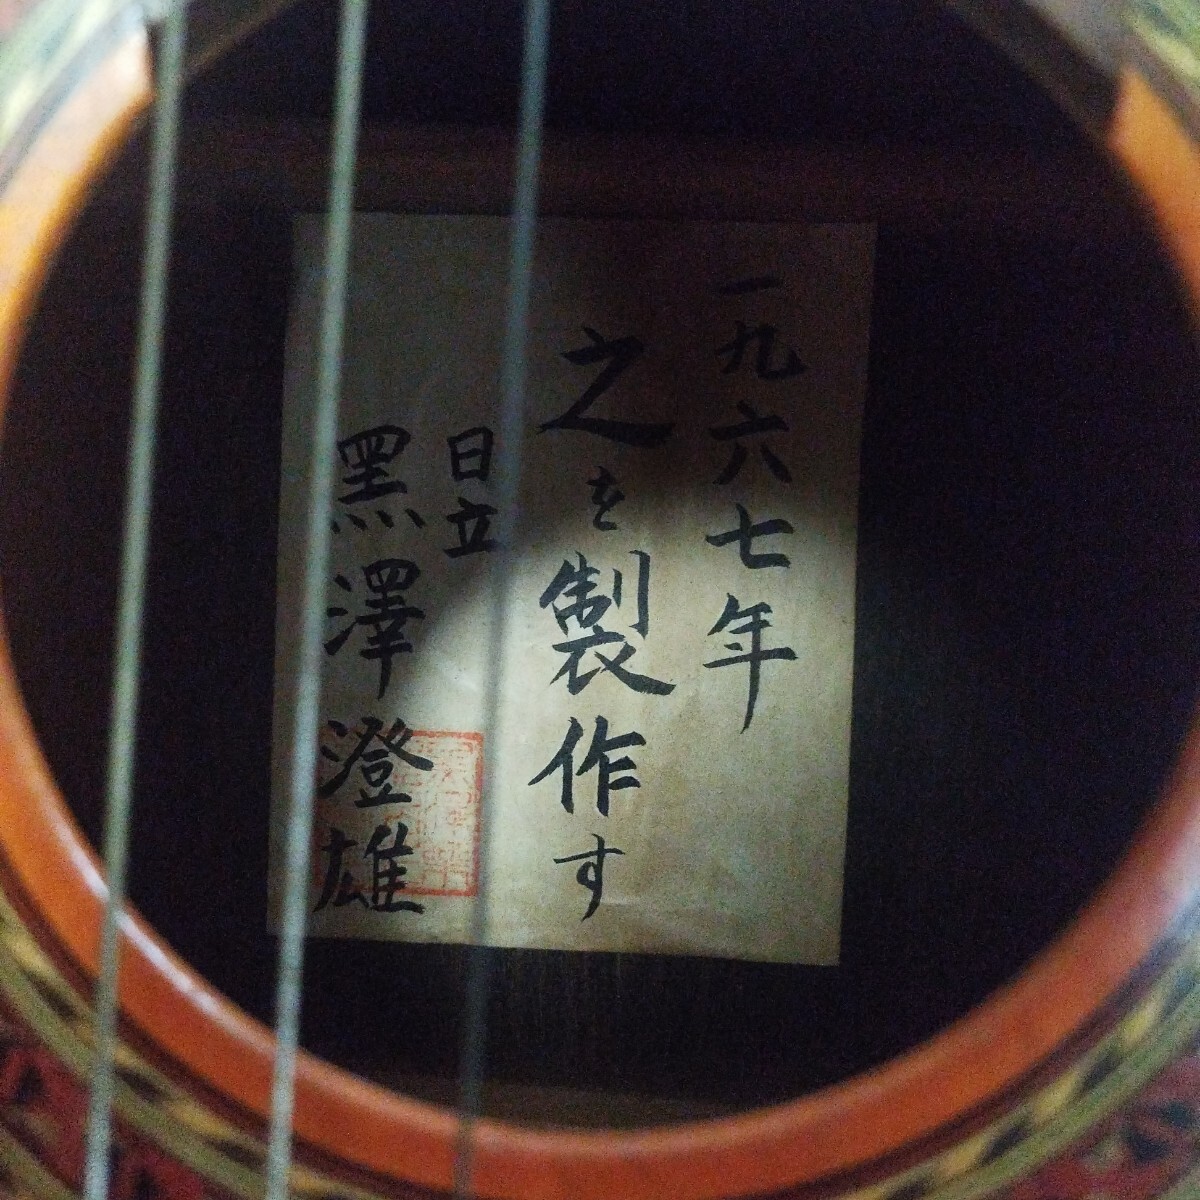 一九六七年
之を製作す
日立
黑澤澄雄